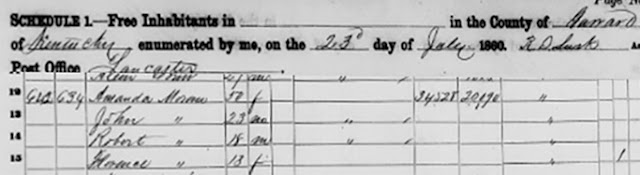 Page No
SCHEDULE 1.—Free Inhabitants in in the County of Garrard
of Kentucky enumerated by me, on the 23d day of July 1860. R D Lusk
Post Office Lancaster
12 634 Amanda Moran 50 f 34528 20,190 "
13 John " 23 m " "
14 Robert " 18 m " "
15 Florence " 13 f " 1